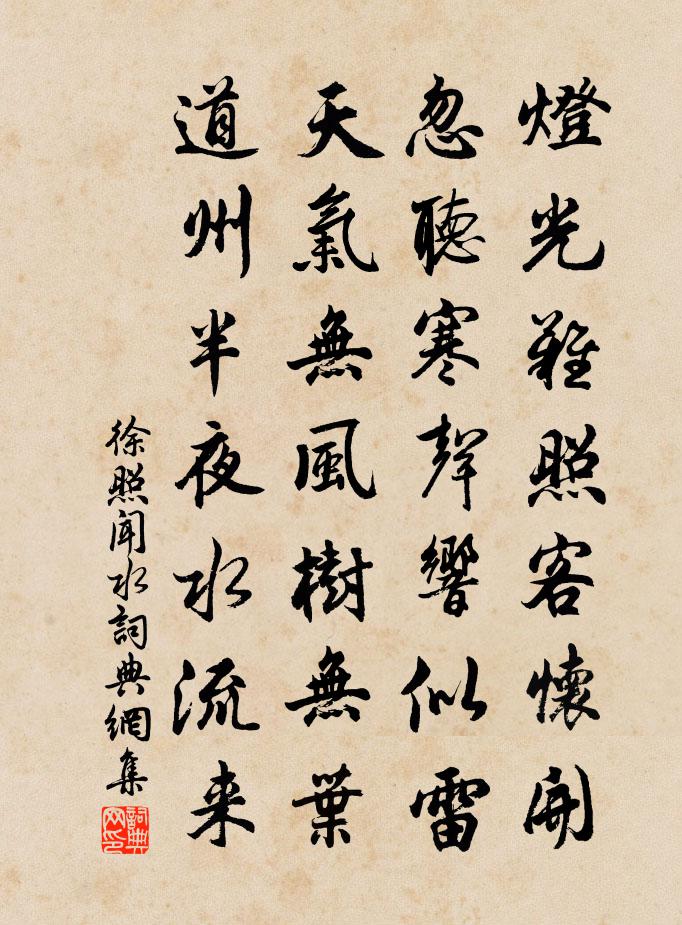 燈光難照客懷開
忽聽寒聲響似雷
天氣無風樹無葉
道州半夜水流来
徐照聞水詞典網集
詞典網印